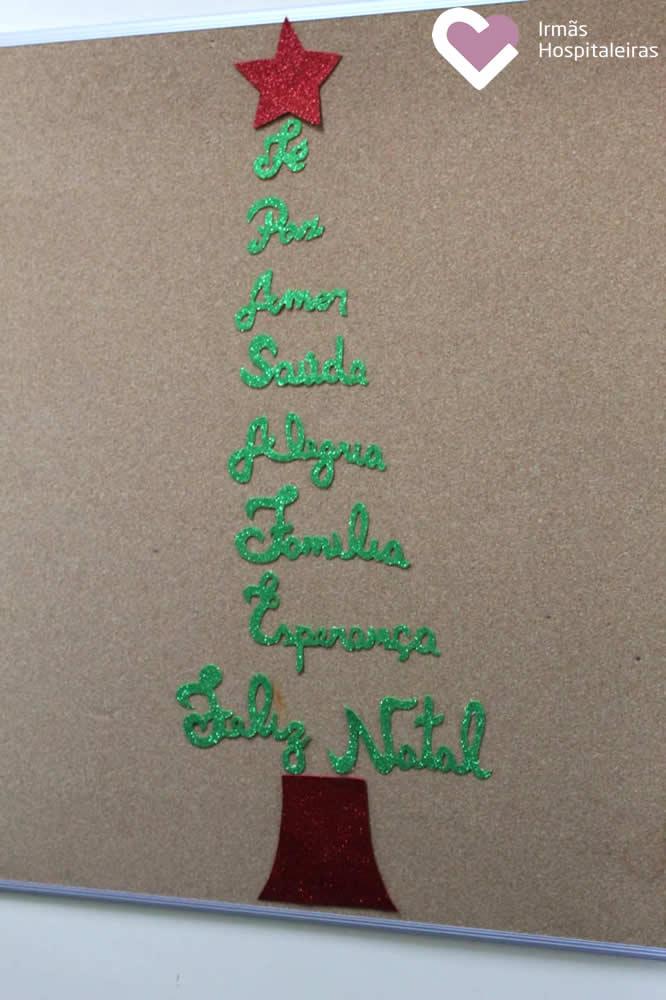 Irmãs
Hospitaleiras
Fé
Paz
Amor
Saúde
Alegria
Familia
Esperança
Feliz Natal